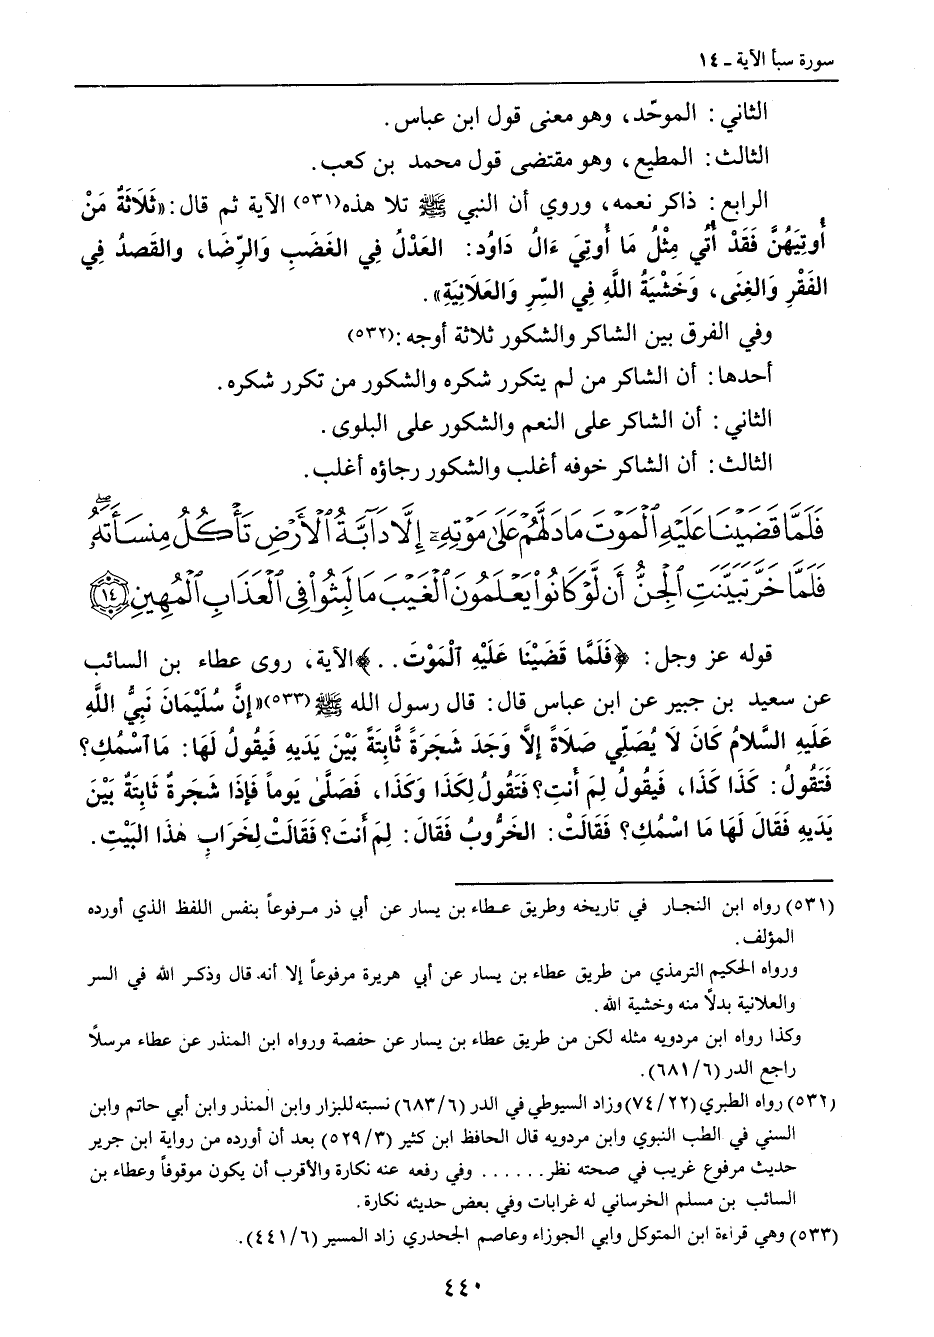 سورة سبأ الآية ـ ١٤
الثاني : الموحّد، وهو معنى قول ابن عباس .
الثالث : المطيع، وهو مقتضى قول محمد بن كعب .
الرابع : ذاكر نعمه، وروي أن النبي ﷺ تلا هذه(٥٣١) الآية ثم قال : «ثَلَاثَةٌ مَنْ
أُوتِيَهُنَّ فَقَدْ أُتُي مِثْلُ مَا أُوتِيَ ءَالُ دَاوُد : العَدْلُ فِي الغَضَبِ وَالرِّضَا، والقَصدُ فِي
الفَقْرِ وَالغِنَى، وَخَشْيَةُ اللَّهِ فِي السِّرِ وَالعَلَانِيَةِ» .
وفي الفرق بين الشاكر والشكور ثلاثة أوجه :(٥٣٢)
أحدها : أن الشاكر من لم يتكرر شكره والشكور من تكرر شكره .
الثاني : أن الشاكر على النعم والشكور على البلوى .
الثالث : أن الشاكر خوفه أغلب والشكور رجاؤه أغلب .
فَلَمَّا قَضَيْنَا عَلَيْهِ ٱلْمَوْتَ مَا دَلَّهُمْ عَلَىٰ مَوْتِهِۦٓ إِلَّا دَآبَّةُ ٱلْأَرْضِ تَأْكُلُ مِنسَأَتَهُۥۖ
فَلَمَّا خَرَّ تَبَيَّنَتِ ٱلْجِنُّ أَن لَّوْ كَانُوا۟ يَعْلَمُونَ ٱلْغَيْبَ مَا لَبِثُوا۟ فِى ٱلْعَذَابِ ٱلْمُهِينِ ١٤
قوله عز وجل : ﴿فَلَمَّا قَضَيْنَا عَلَيْهِ ٱلْمَوْتَ . .﴾ الآية، روى عطاء بن السائب
عن سعيد بن جبير عن ابن عباس قال : قال رسول الله ﷺ(٥٣٣) «إِنَّ سُلَيْمَانَ نَبِيُّ اللَّهِ
عَلَيهِ السَّلَامُ كَانَ لَا يُصَلِّي صَلَاةً إلَّا وَجَدَ شَجَرَةً ثَابِتَةً بَيْنَ يَدَيهِ فَيَقُولُ لَهَا : مَا ٱسْمُكِ؟
فَتَقُولُ : كَذَا كَذَا، فَيقُولُ لِمَ أَنتِ؟ فَتَقُولُ لِكَذَا وَكَذَا، فَصَلَّىٰ يَوماً فَإذَا شَجَرةٌ ثَابِتَةٌ بَيْنَ
يَدَيهِ فَقَالَ لَهَا مَا اسْمُكِ؟ فَقَالَتْ : الخَرُّوبُ فَقَالَ : لِمَ أَنتَ؟ فَقَالَتْ لِخَرَابِ هٰذَا البَيْتِ .
(٥٣١) رواه ابن النجار في تاريخه وطريق عطاء بن يسار عن أبي ذر مرفوعاً بنفس اللفظ الذي أورده
المؤلف .
ورواه الحكيم الترمذي من طريق عطاء بن يسار عن أبي هريرة مرفوعاً إلا أنه قال وذكر الله في السر
والعلانية بدلاً منه وخشية الله .
وكذا رواه ابن مردويه مثله لكن من طريق عطاء بن يسار عن حفصة ورواه ابن المنذر عن عطاء مرسلاً
راجع الدر (٦/ ٦٨١) .
(٥٣٢) رواه الطبري (٢٢/ ٧٤) وزاد السيوطي في الدر (٦/ ٦٨٣) نسبته للبزار وابن المنذر وابن أبي حاتم وابن
السني في الطب النبوي وابن مردويه قال الحافظ ابن كثير (٣/ ٥٢٩) بعد أن أورده من رواية ابن جرير
حديث مرفوع غريب في صحته نظر . . . . . . وفي رفعه عنه نكارة والأقرب أن يكون موقوفاً وعطاء بن
السائب بن مسلم الخرساني له غرابات وفي بعض حديثه نكارة .
(٥٣٣) وهي قراءة ابن المتوكل وابي الجوزاء وعاصم الجحدري زاد المسير (٦/ ٤٤١) .
٤٤٠